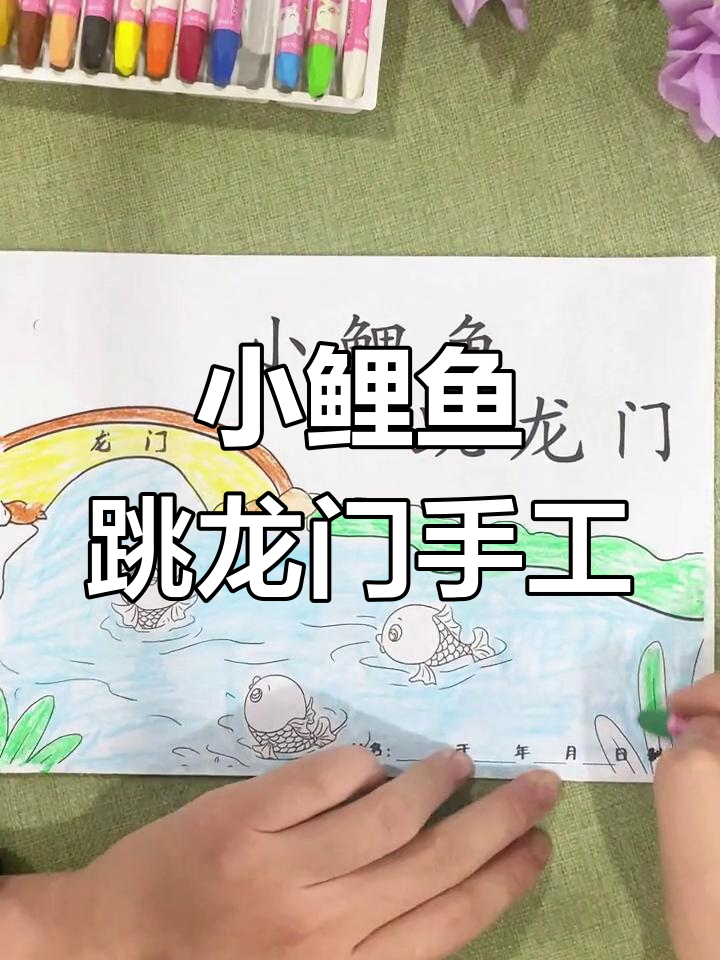 小鲤鱼
跳龙门手工
小鲤鱼
跳龙门
龙门
名：
于 年 月 日